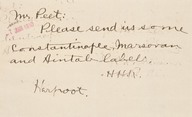 Mr Peet:
Please send us some
Constantinople, Marsovan
and Aintab labels.
H.H.R.
Harpoot.